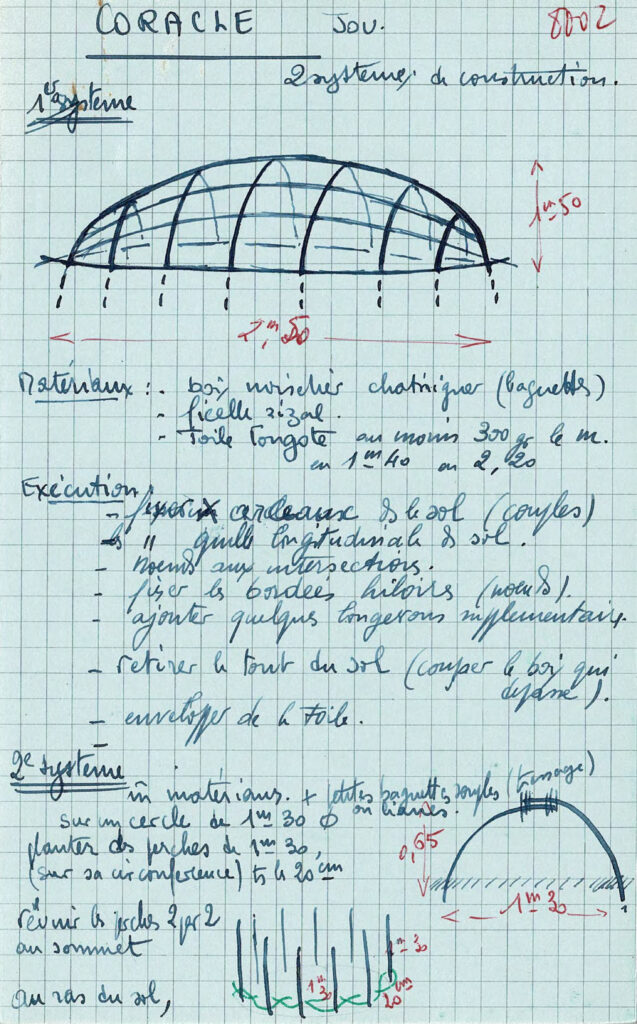 CORACLE Jov. 8002
2 systemes de construction.
1er systeme
1m50
2m,50
Matériaux : - bois noisetier chataignier (baguettes)
- ficelle sizal.
- Toile Tongste au moins 300 gr le m.
en 1m40 ou 2,20
Exécution
- fixer cerceaux ds le sol (couples)
- " quille longitudinale ds sol.
- noeuds aux intersections.
- fixer les bordées hiloires (noeuds).
- ajouter quelques longerons supplementaire.
- retirer le tout du sol (couper le bois qui
depasse).
- envelopper de la Toile.
2e systeme
m matériaux. + petites baguettes souples (tissage)
ou lianes.
sur un cercle de 1m30 ø
planter des perches de 1m30,
(sur sa circonference) ts les 20cm
0,65
1m30
réunir les perches 2 par 2
au sommet
1m30
1m30
20cm
au ras du sol,